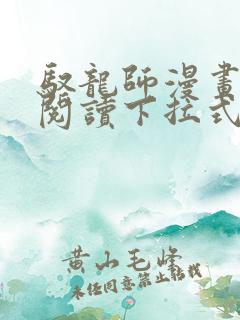 馭龍師漫畫
閱讀下拉式
黄山毛峰
未经同意禁止转载